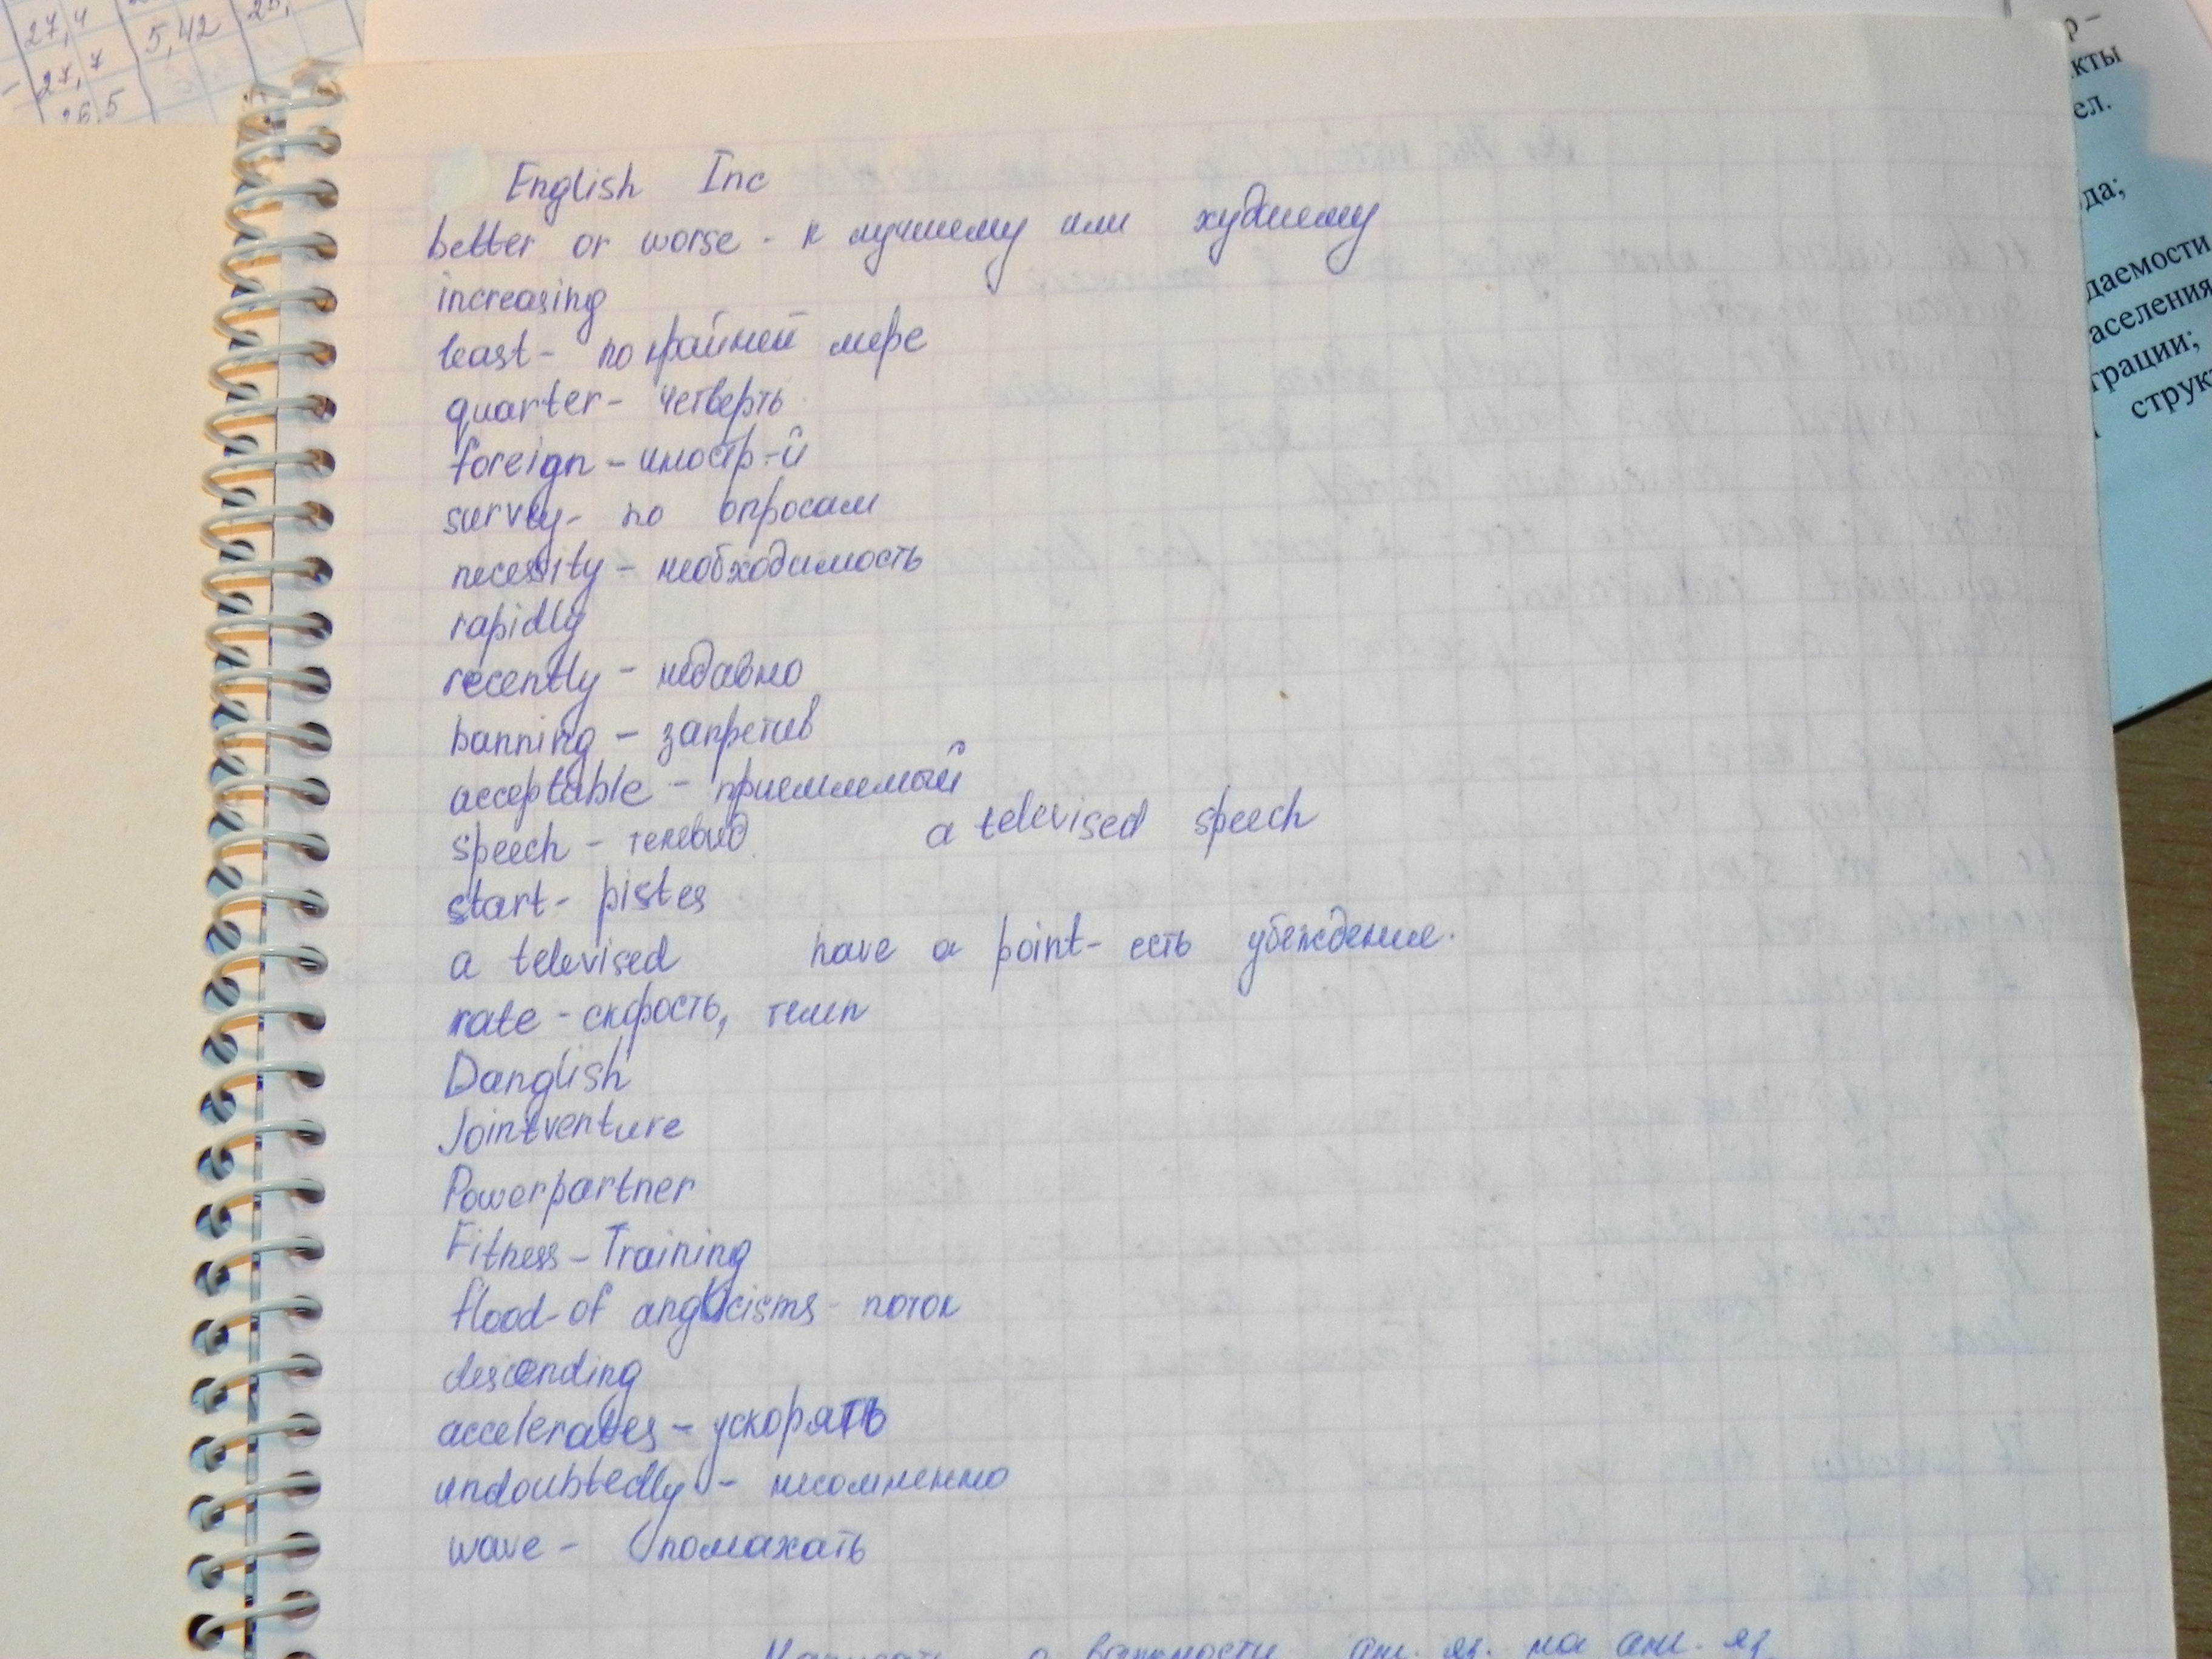 27,4
5,42
27,7
26,5
кты
ел.
да;
даемости
аселения
грации;
струк
English Inc
better or worse - к лучшему или худшему
increasing
least - по крайней мере
quarter - четверть
foreign - иностр-й
survey - по опросам
necessity - необходимость
rapidly
recently - недавно
banning - запретив
acceptable - приемлемый
speech - телевид a televised speech
start - pistes
a televised have a point - есть убеждение.
rate - скорость, темп
Danglish
Jointventure
Powerpartner
Fitness - Training
flood of anglicisms - поток
descending
accelerates - ускорять
undoubtedly - несомненно
wave - помахать
Написать о важности анг. яз. на анг. яз